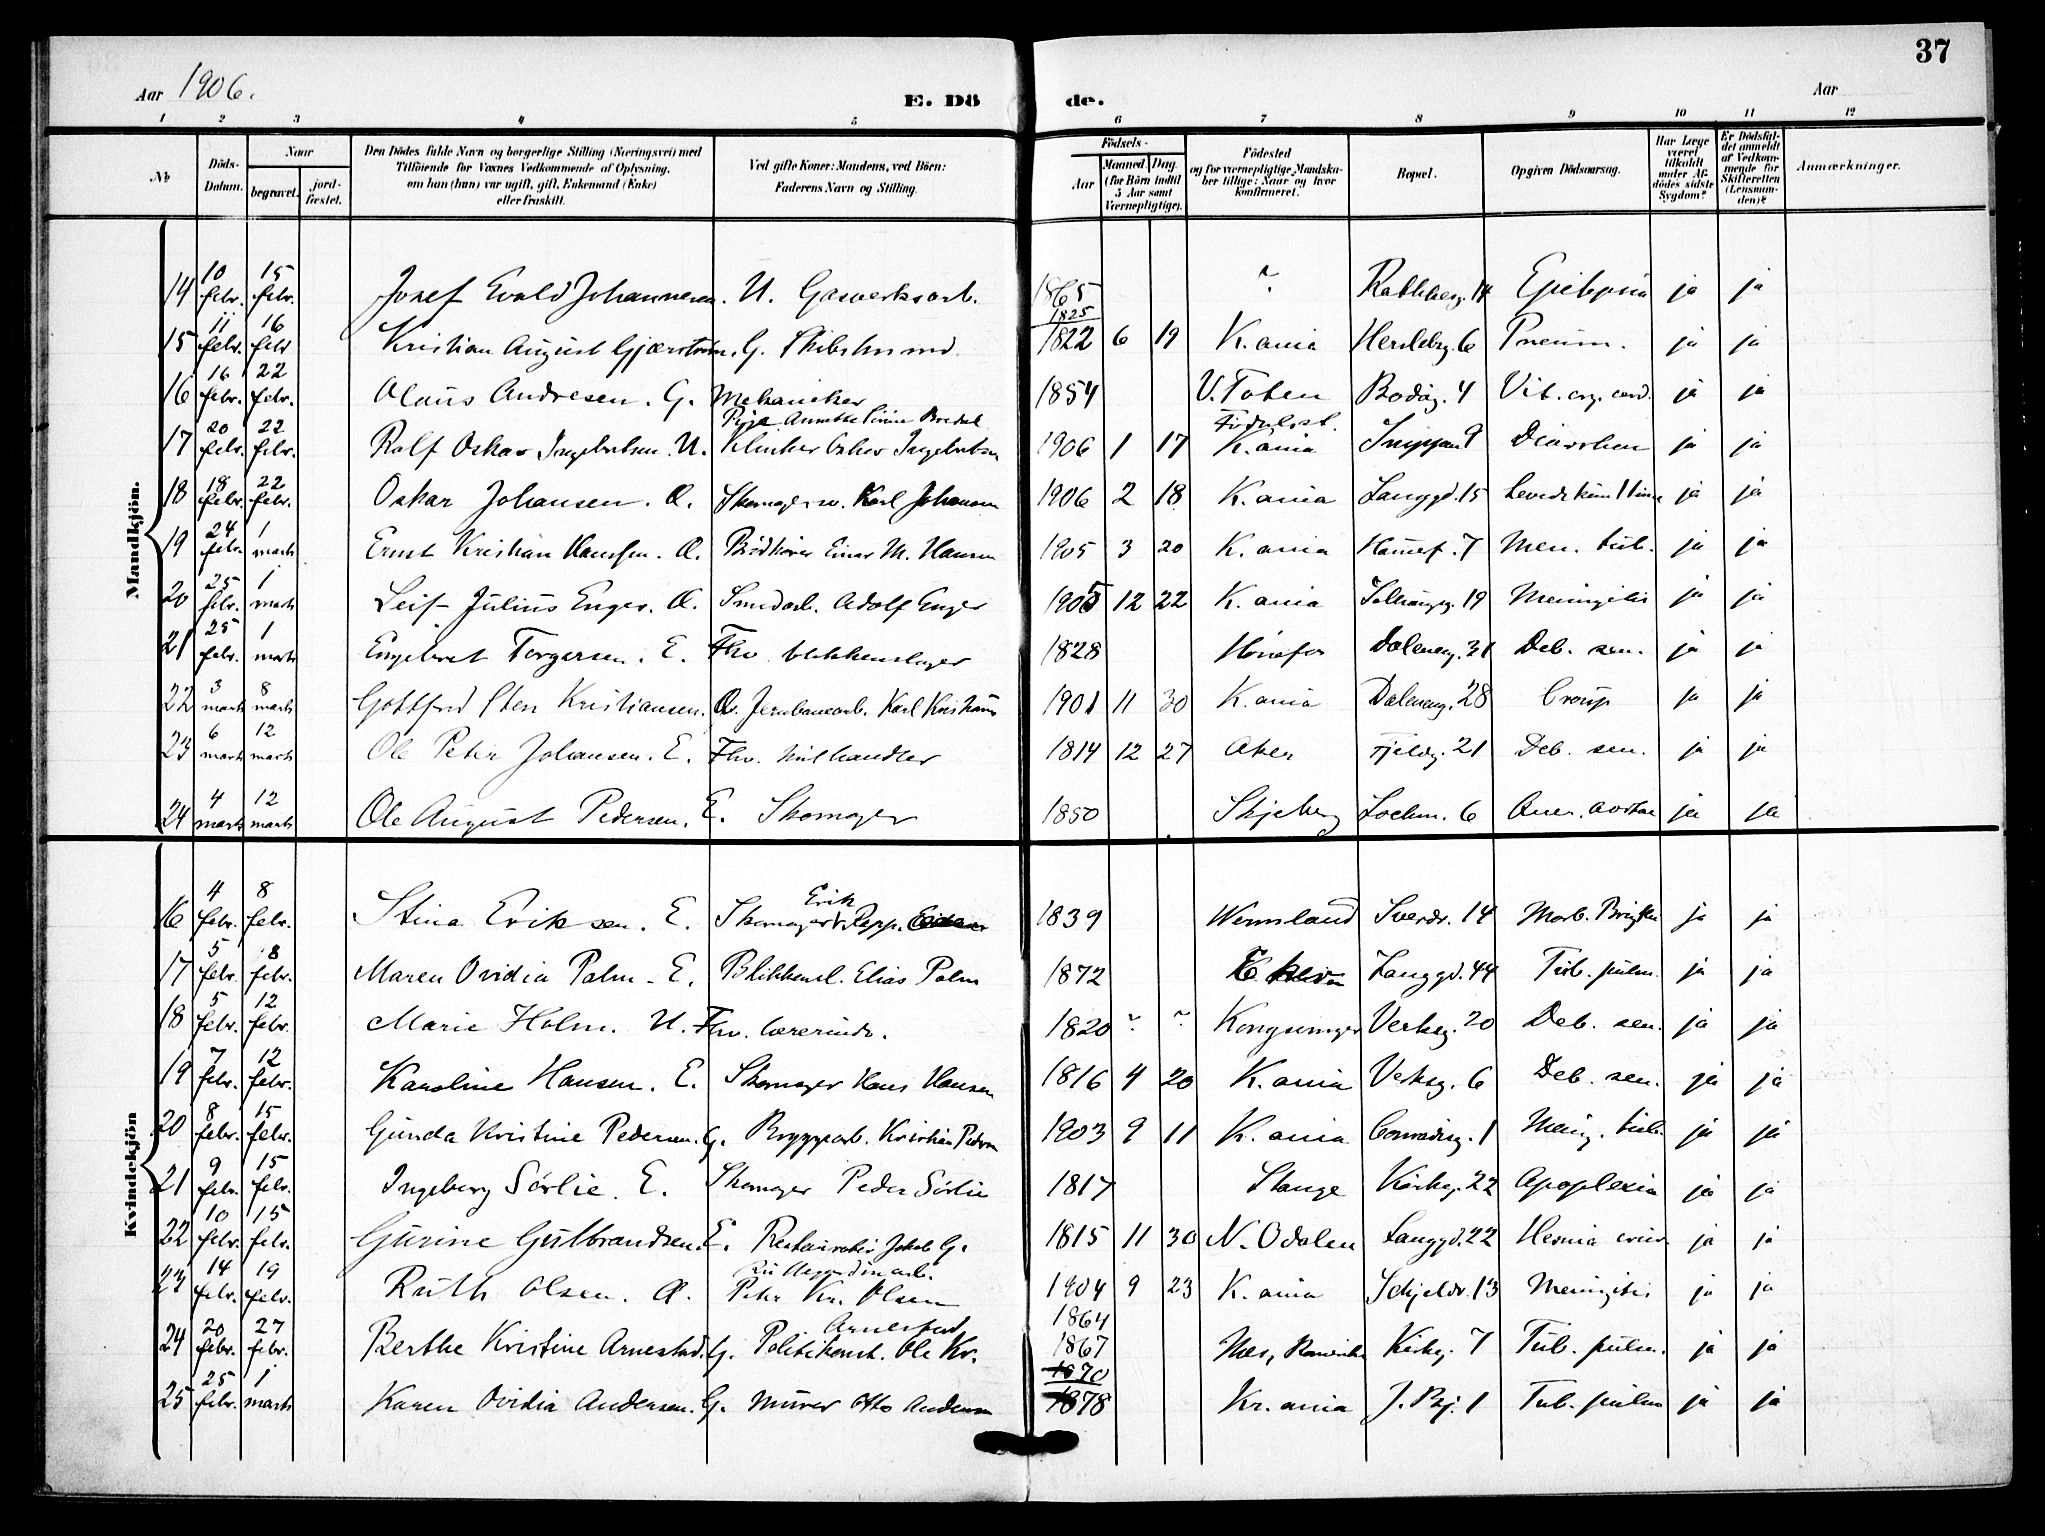 37
Aar 1906.
E. Dö de.
Aar
1 2 3 4 5 6 7 8 9 10 11 12
№
Döds-Datum.
Naar
begravet.
jord-fæstet.
Den Dödes fulde Navn og borgerlige Stilling (Næringsvei) med Tilföiende for Voxnes Vedkommende af Oplysning, om han (hun) var ugift, gift, Enkemand (Enke) eller fraskilt.
Ved gifte Koner: Mandens, ved Börn: Faderens Navn og Stilling.
Födsels-
Aar
Maaned. Dag.
(for Börn indtil 5 Aar samt Værnepligtige).
Födested og for værnepligtige Mandska-ber tillige: Naar og hvor konfirmeret.
Bopæl.
Opgiven Dödsaarsag.
Har Læge været tilkaldt under Af-dödes sidste Sygdom?
Er Dödsfal-det anmeldt af Vedkom-mende for Skifteretten (Lensman-den)?
Anmærkninger.
Mandkjön.
14 10 febr. 15 febr. Josef Evald Johannesen. U. Gasverksarb. 1865 ? Rathkesg. 14 ja ja
1825
15 11 febr. 16 febr Kristian August Gjerstrøm. G. 1822 6 19 K.ania Herslebg. 6 Pneum. ja ja
16 16 febr. 22 febr. Olaus Andresen. G. Mekaniker 1854 V. Toten Bodøg. 4 Vit. org. cord. ja ja
Pige Annette Bredal Fødselsst.
17 20 febr. 22 febr. Rolf Oskar Ingebretsen. U. Oskar Ingebretsen 1906 1 17 K.ania 9 Diarrhea ja ja
18 18 febr. 22 febr. Oskar Johansen. Æ. Skomagersv. Karl Johansen 1906 2 18 K.ania Langgd. 15 Levede kun 1 time ja ja
19 24 febr. 1 marts Ernst Kristian Hansen. Æ. Bødtker Einar M. Hansen 1905 3 20 K.ania 7 Men. tub. ja ja
20 25 febr. 1 marts Leif Julius Enger. Æ. Smedarb. Adolf Enger 1905 12 22 K.ania 19 Meningitis ja ja
21 25 febr. 1 marts Engebret Torgersen. E. Fhv. blikkenslager 1828 Hønefos Dæleneng. 31 Deb. sen. ja ja
22 3 marts 8 marts Gottfred Sten Kristiansen. Æ. Jernbanearb. Karl Kristians 1901 11 30 K.ania Dæleneng. 28 Croup ja ja
23 6 marts 12 marts Ole Peter Johansen. E. Fhv. hulhandler 1814 12 27 Aker Fjeldg. 21 Deb. sen. ja ja
24 4 marts 12 marts Ole August Pedersen. E. Skomager 1850 Skjeberg 6 Aner. aortae ja ja
Kvindekjön
Erik
16 4 febr. 8 febr. Stina Eriksen. E. Skomager Repp. 1839 Wermland Sverdr. 14 Morb. Brightii ja ja
17 5 febr. 8 febr. Maren Ovidia Palm. E. Blikkensl. Elias Palm 1872 Langgd. 44 Tub. pulm. ja ja
18 5 febr. 12 febr. Marie Holm. U. Fhv. lærerinde. 1820 ? ? Kongsvinger Verksg. 20 Deb. sen. ja ja
19 7 febr. 12 febr. Karoline Hansen. E. Skomager Hans Hansen 1816 4 20 K.ania Verksg. 6 Deb. sen. ja ja
20 8 febr. 15 febr. Gunda Kristine Pedersen. G. Bryggearb. Kristian Pedersen 1903 9 11 K.ania Conradisg. 1 Mening. tub. ja ja
21 9 febr. 15 febr. Ingeborg Sørlie. E. Skomager Peder Sørlie 1817 Stange Kirkeg. 22 Apoplexia ja ja
22 10 febr. 15 febr. Gurine Gulbrandsen. E. Restauratør Jakob G. 1815 11 30 N. Odalen Langgd. 22 Hernia crur ja ja
23 14 febr. 19 febr. Ruth Olsen. Æ. Peter Kr. Olsen 1904 9 23 K.ania Schjeldr. 13 Meningitis ja ja
Arnestad 1864
24 20 febr. 27 febr. Berthe Kristine Arnestad. G. Politikonst. Ole Kr. 1867 Nes, Romerike Kirkeg. 7 Tub. pulm. ja ja
1870
25 25 febr. 1 marts Karen Ovidia Andersen. G. Murer Otto Andersen 1878 Kr.ania J. Bg. 1 Tub. pulm ja ja